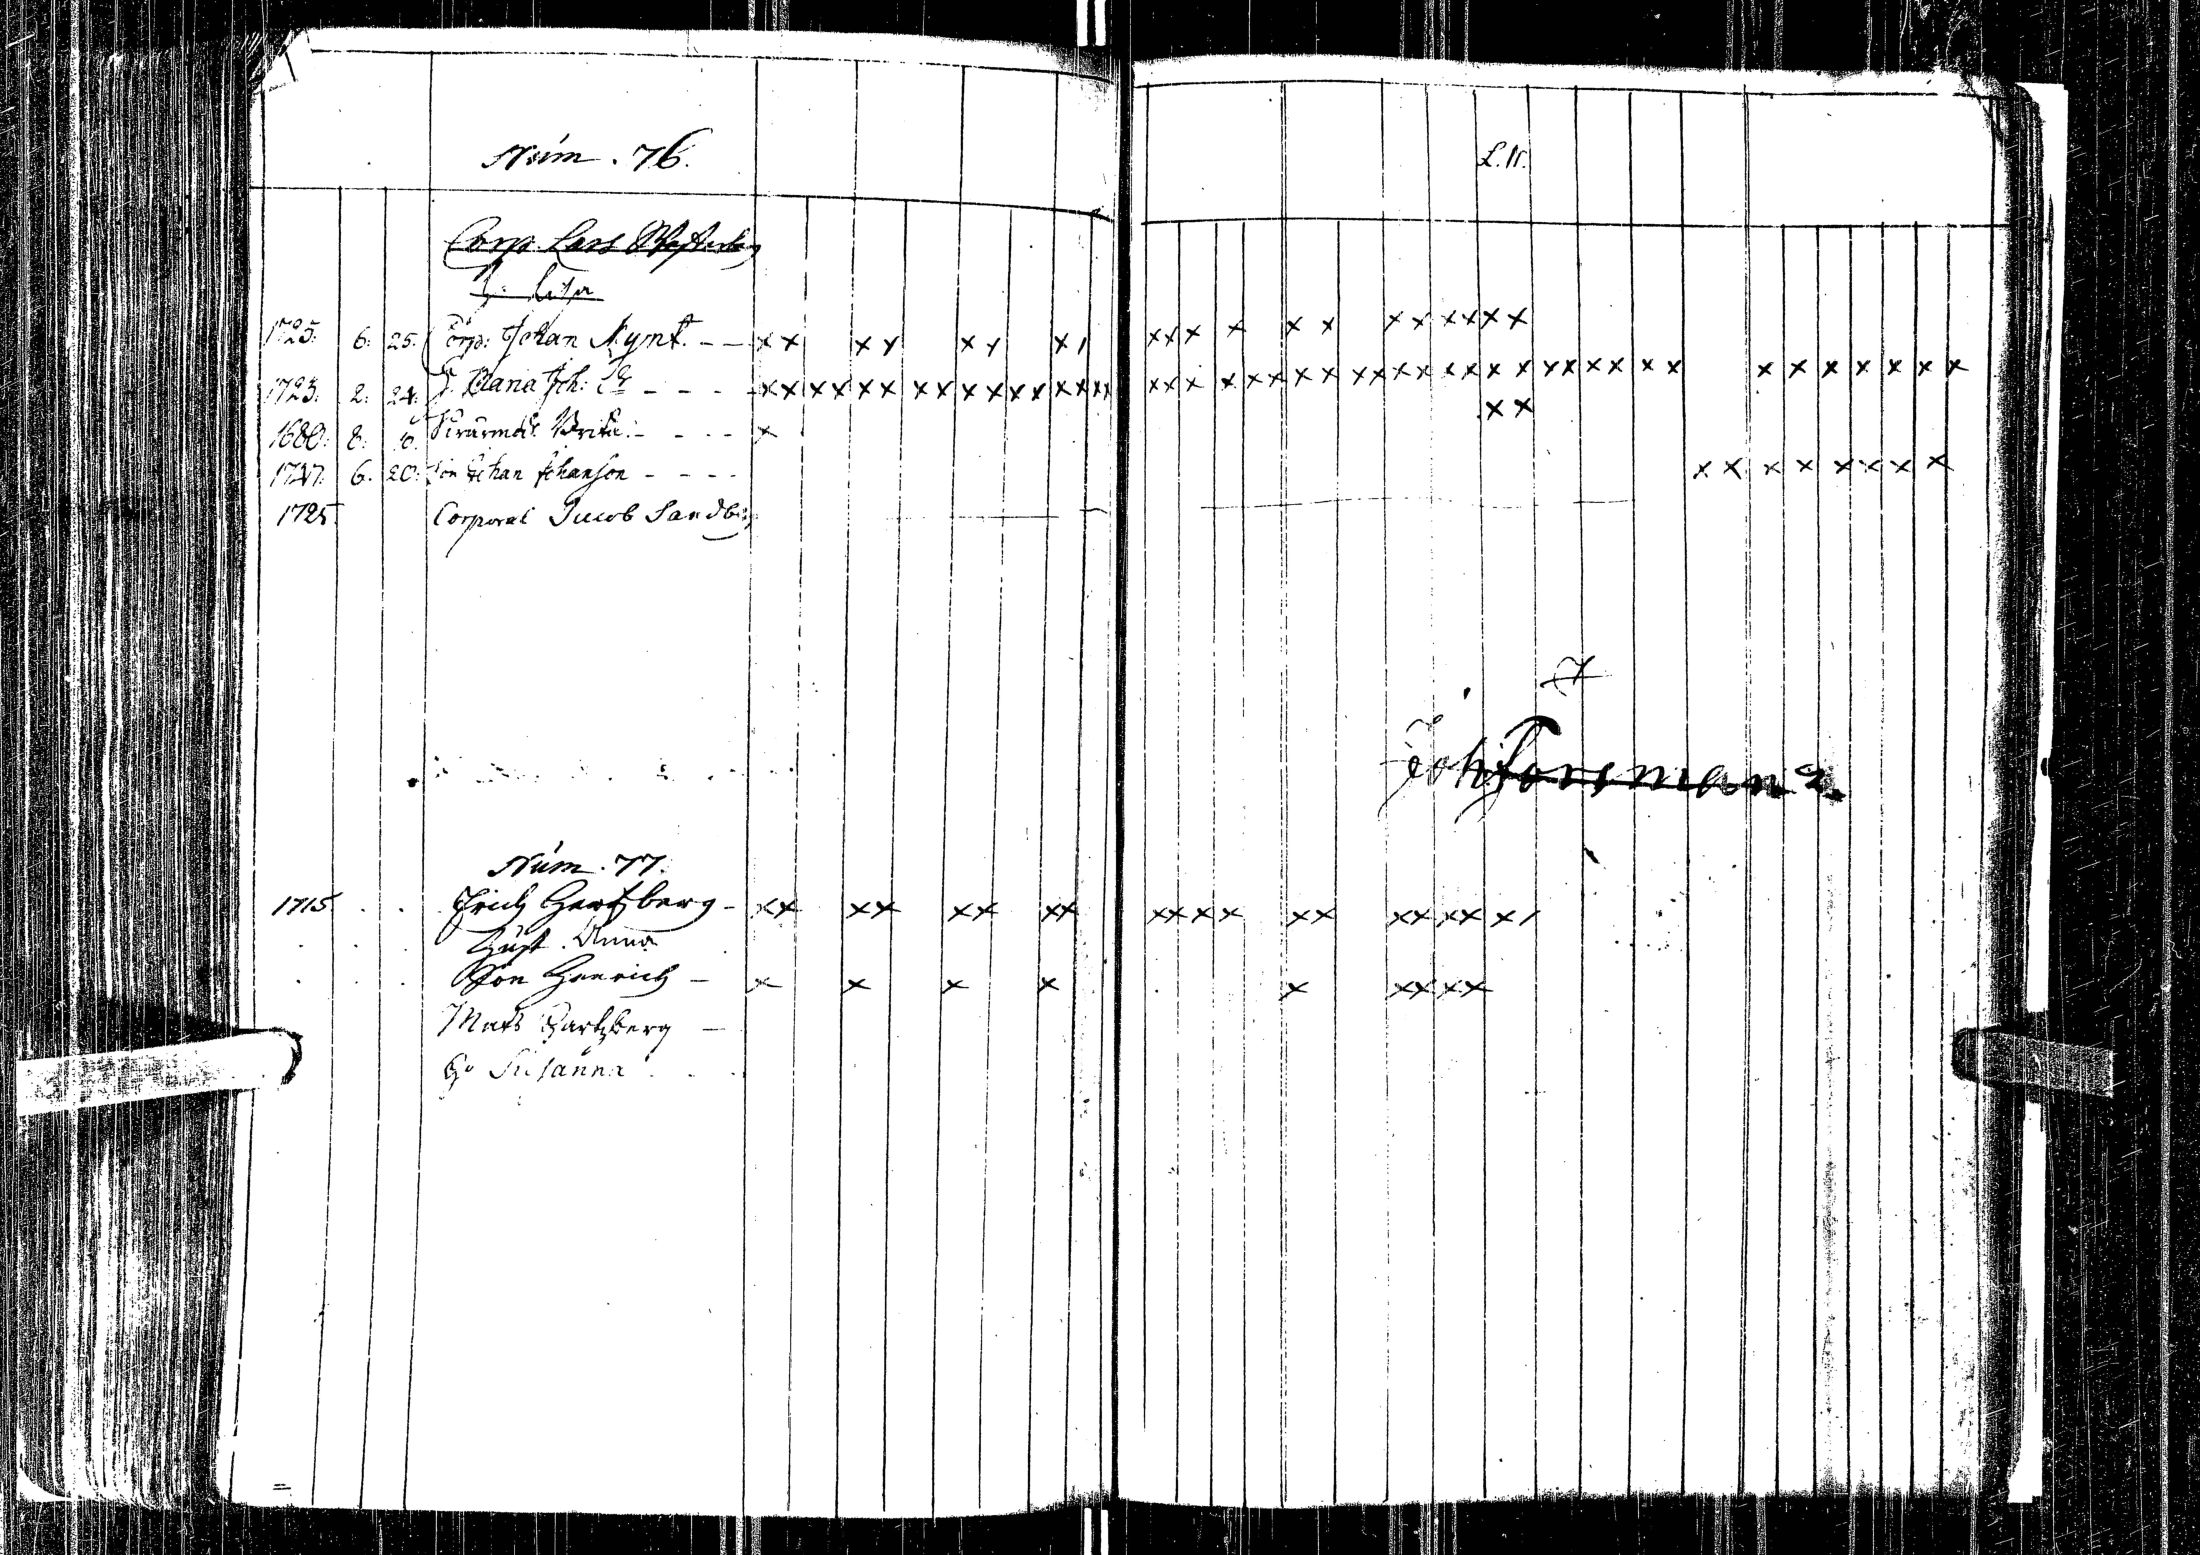 Num. 76.
L. N.
Corp. Lars Westerberg
H. Lisa
1725. 6. 25. Corp: Johan Nymt. - - x x x x x x x x x x x x x x x x x x x x
1723. 2. 24. H. Maria Joh: Dr - - - - x x x x x x x x x x x x x x x x x x x x x x x x x x x x x x x x x x x x x x x x x x x x
x x
1680. 8. 6. Brita - - - - x
1747. 6. 20. Son Johan Johanson - - - - x x x x x x x x
1725. Corporal Jacob Sandberg
Joh Forsman
Num. 77.
1715 Erich Hartzberg - xx xx xx xx xx x x xx xx xx x
Hust. Anna
Son Henrich - x x x x x xx xx
Mats Hartzberg -
H. Susanna